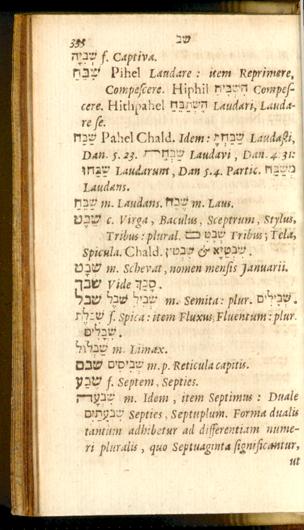 שב
שִׁבְיָה f. Captiva.
שָׁבַח Pihel Laudare : item Reprimere,
Compescere. Hiphil הִשְׁבִּיחַ Compes-
cere. Hithpahel הִשְׁתַּבַּח Laudari, Lauda-
re se.
שַׁבַּח Pahel Chald. Idem: שַׁבַּחְתָּ Laudasti,
Dan. 5. 23. Laudavi , Dan. 4. 31:
שַׁבַּחוּ Laudarunt, Dan 5.4. Partic. מְשַׁבַּח
Laudans.
m. Laudans. m. Laus.
שֵׁבֶט c. Virga , Baculus, Sceptrum, Stylus,
Tribus : plural. שְׁבָטִים Tribus ; Tela,
Spicula. Chald. &
שְׁבָט m. Schevat , nomen mensis Januarii.
שבך Vide סָבַךְ.
שבל שְׁבִיל m. Semita : plur. שְׁבִילִים.
שִׁבֹּלֶת f. Spica : item Fluxus, Fluentum : plur.
שִׁבֳּלִים.
שַׁבְּלוּל m. Limax.
שבם שְׁבִיסִים m. p. Reticula capitis.
שֶׁבַע f. Septem, Septies.
שִׁבְעָה m. Idem , item Septimus : Duale
שִׁבְעָתַיִם Septies , Septuplum. Forma dualis
tantùm adhibetur ad differentiam nume-
ri pluralis , quo Septuaginta significantur,
ut